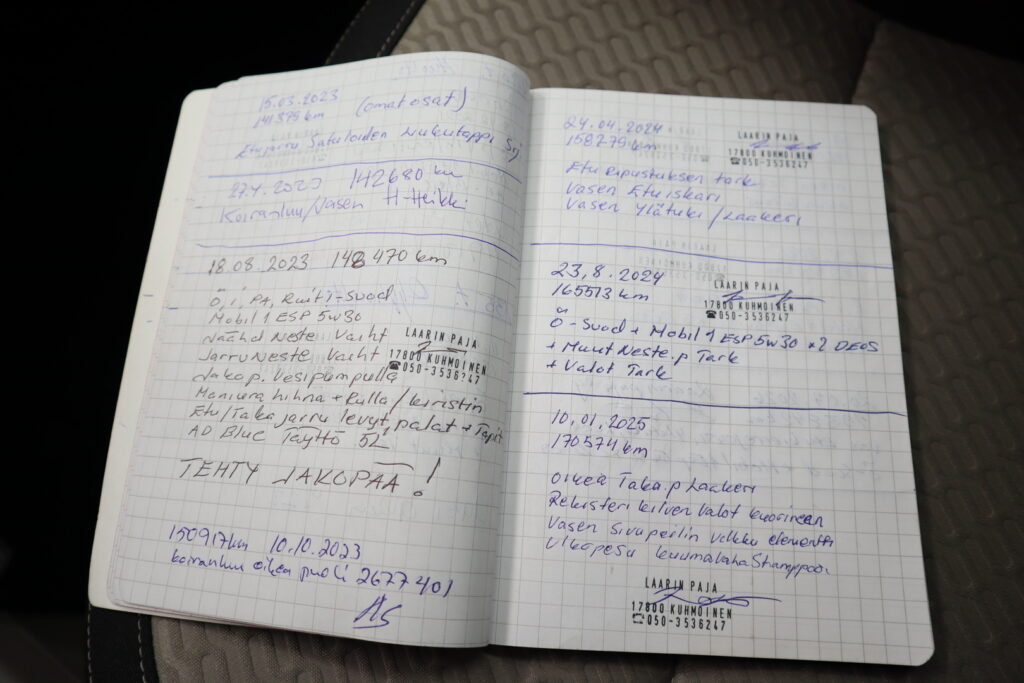 15.03.2023
141379 km (omat osat)
Etujarru Satuloiden Liukutappi Srj
27.4.2023 142680 km
Koiranluu/Vasen H-Heikki
18.08.2023 148470 km
Ö, i, PA, Rait i-Suod
Mobil 1 ESP 5w30
Jäähd Neste Vaiht
Jarru Neste Vaiht
Jakop. Vesipumpulla
Moniura hihna + Rulla/kiristin
Etu/Taka jarru levyt, palat + Tapit
AD Blue Täyttö 5L
LAARIN PAJA
17800 KUHMOINEN
☎050-3536247
TEHTY JAKOPÄÄ!
150917km 10.10.2023
koiranluu oikea puoli 2677401
24.04.2024
158279 km
LAARIN PAJA
17800 KUHMOINEN
☎050-3536247
Etu ripustuksen tark
Vasen Etuiskari
Vasen Ylätuki/Laakeri
23,8.2024
165513 km
LAARIN PAJA
17800 KUHMOINEN
☎050-3536247
Ö-Suod + Mobil 1 ESP 5w30 x2 DEOS
+ Muut Neste.p Tark
+ Valot Tark
10,01.2025
170574 km
Oikea Taka.p Laakeri
Rekisteri kilven Valot kuorineen
Vasen Sivupeilin Vilkku elementti
Ulkopesu kuumavaha Shamppoo
LAARIN PAJA
17800 KUHMOINEN
☎050-3536247